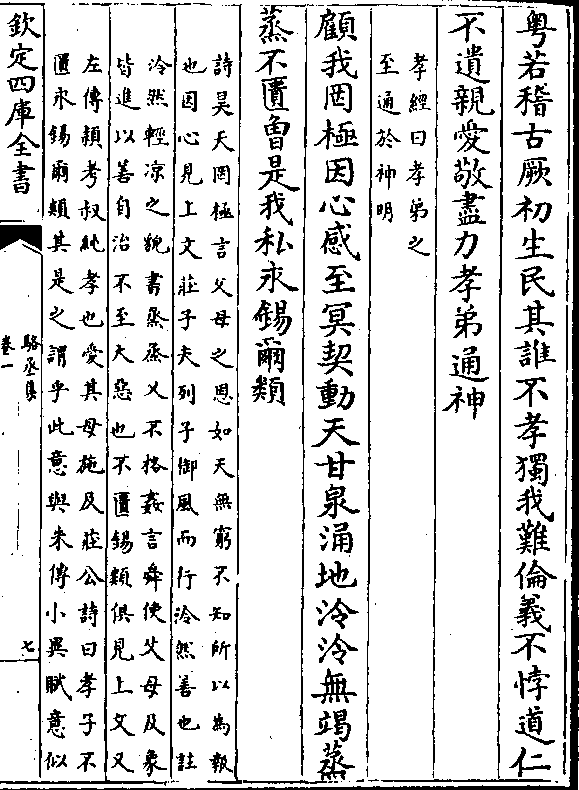 粤若稽古厥初生民其誰不孝獨我難倫義不悖道仁
不遺親愛敬盡力孝弟通神
孝經曰孝弟之
至通於神明
顧我罔極因心感至冥契動天甘泉涌地泠泠無竭蒸
蒸不匱魯是我私永錫爾類
詩昊天罔極言父母之恩如天無窮不知所以為報
也因心見上文莊子夫列子御風而行泠然善也註
泠然輕凉之貌書烝烝乂不格姦言舜使父母及象
皆進以善自治不至大惡也不匱錫類俱見上文又
左傳頴考叔純孝也愛其母施及莊公詩曰孝子不
匱永錫爾類其是之謂乎此意與朱傳小異賦意似
欽定四庫全書
駱丞集
卷一
七